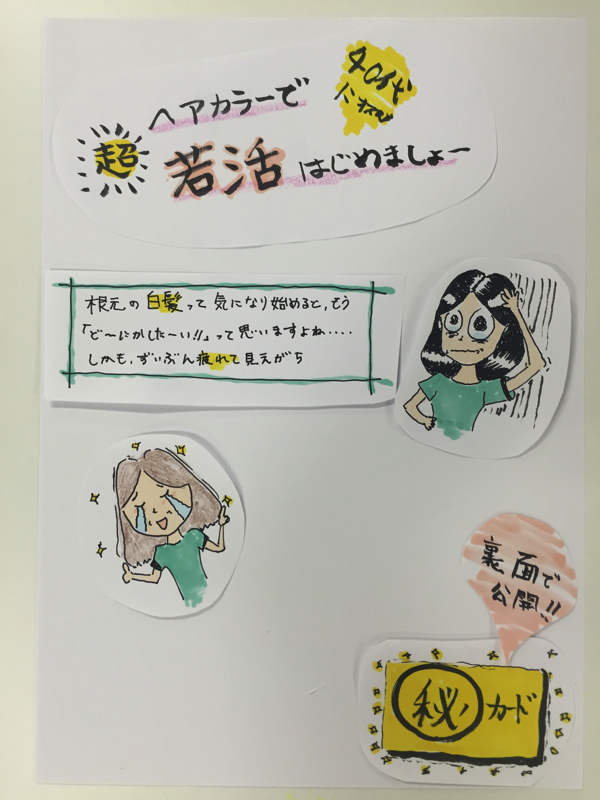 40代
にわて
ヘアカラーで
超
若活はじめましょー
根元の白髪って気になり始めると、もう
「ど〜にかした〜い!!」って思いますよね....
しかも、ずいぶん疲れて見えがち
裏面で
公開!!
秘カード